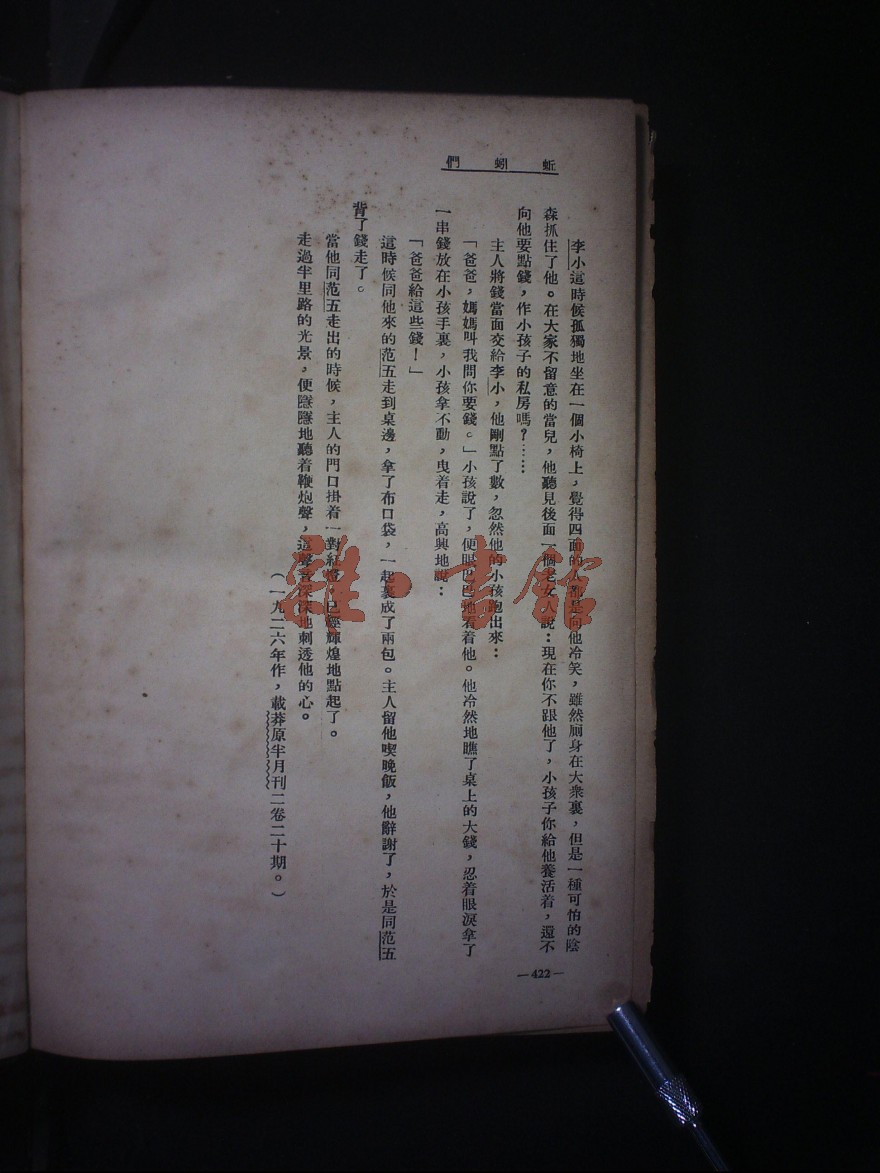 蚯蚓們
李小這時候孤獨地坐在一個小椅上，覺得四面的人都是向他冷笑，雖然廁身在大衆裏，但是一種可怕的陰
森抓住了他。在大家不留意的當兒，他聽見後面一個老女人說：現在你不跟他了，小孩子你給他養活着，還不
向他要點錢，作小孩子的私房嗎？……
主人將錢當面交給李小，他剛點了數，忽然他的小孩跑出來：
「爸爸，媽媽叫我問你要錢。」小孩說了，便眼巴巴地看着他。他冷然地瞧了桌上的大錢，忍着眼淚拿了
一串錢放在小孩手裏，小孩拿不動，曳着走，高興地說：
「爸爸給這些錢！」
這時候同他來的范五走到桌邊，拿了布口袋，一起裹成了兩包。主人留他喫晚飯，他辭謝了，於是同范五
背了錢走了。
當他同范五走出的時候，主人的門口掛着一對紅燈，已經輝煌地點起了。
走過半里路的光景，便隱隱地聽着鞭炮聲，這聲音深深地刺透他的心。
（一九二六年作，載莽原半月刊二卷二十期。）
—422—
雜·書館